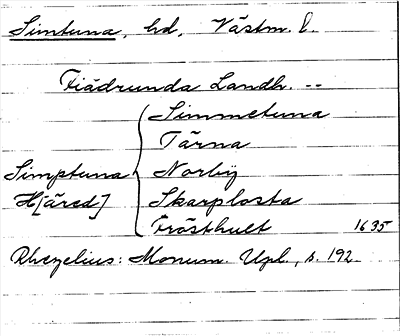 Simtuna, hd, Västm. l.
Fiädrunda Landh. --
Simmetuna
Tärna
Simptuna Norby
H[äred] Skarplösta
Frösthult 1635
Rhezelius: Monum. Upl., s. 192.